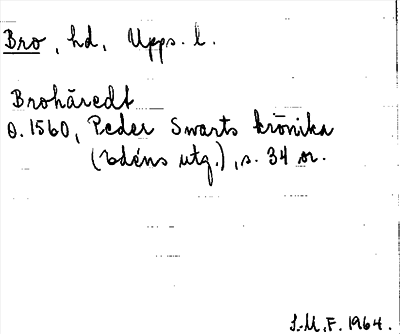 Bro, hd, Upps. l.
Brohäredt
O. 1560, Peder Swarts krönika
(Edéns utg.), s. 34 or.
I.-M. F. 1964.